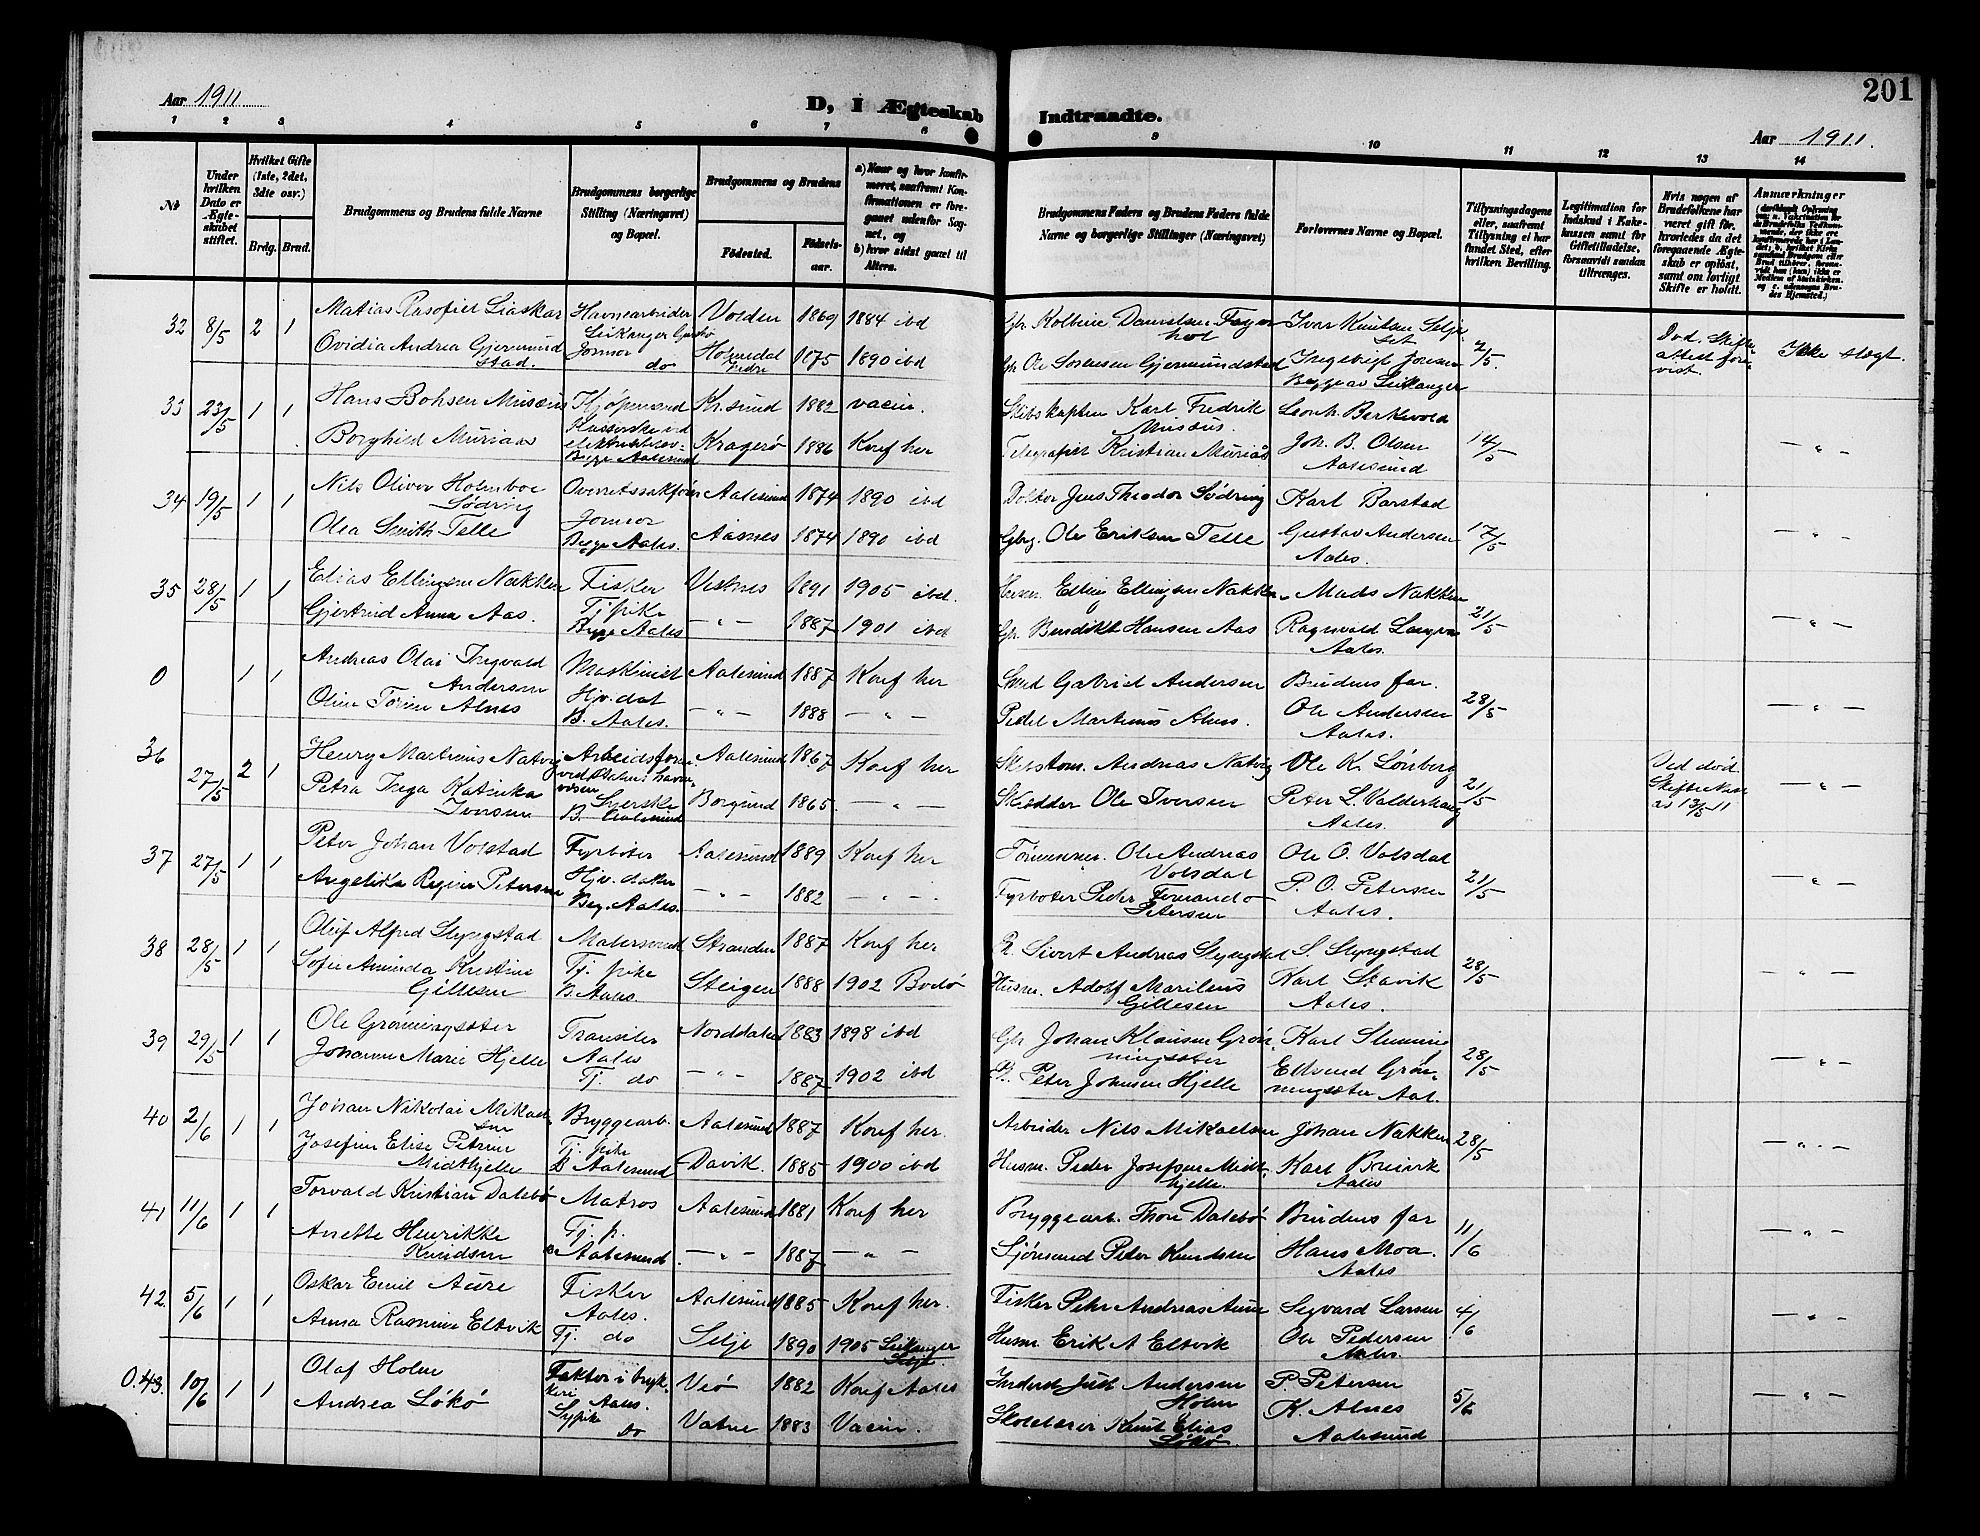 201
Aar 1911
D, I Ægteskab Indtraadte.
Aar 1911.
1 2 3 4 5 6 7 8 9 10 11 12 13 14
№
Under hvilken Dato er Ægteskabet stiftet.
Hvilket Gifte (1ste, 2det, 3die osv.)
Brdg. Brud.
Brudgommens og Brudens fulde Navne
Brudgommens borgerlige Stilling (Næringsvei) og Bopæl.
Brudgommens og Brudens
Fødested.
Fødselsaar.
a) Naar og hvor konfirmeret, saafremt Konfirmationen er foregaaet udenfor Sognet, og
b) hvor sidst gaaet til Alters.
Brudgommens Faders og Brudens Faders fulde Navne og borgerlige Stillinger (Næringsvei)
Forlovernes Navne og Bopæl.
Tillysningsdagene eller, saafremt Tillysning ei har fundet Sted, efter hvilken Bevilling.
Legitimation for Indskud i Enkekassen samt for Giftetilladelse, forsaavidt saadan tiltrænges.
Hvis nogen af Brudefolkene har været gift før, hvorledes da det foregaaende Ægteskab er opløst, samt om lovligt Skifte er holdt.
Anmærkninger
32 8/5 2 1 Matias Rasofiel Liaskar Havnearbeider Volden 1869 1884 ibd
Gbr Kolbein Danielsen Ivar Knutsen Selje 2/5
Leikanger
Ovidia Andrea Gjermundstad. Jomfor do 1875 1890 ibd
Gbr Ole Sørensen Gjermundstad Ingebrigt Jonsen
Begge av Leikanger
Ikke slegt.
33 23/5 1 1 Hans Bohsen Musæus Kjøpmand Kr.sund 1882 vaccin.
Skibskaptein Karl Fredrik Musæus. Leonh. Berkevold
Borghild Muriaas Kragerø 1886 Konf her
Begge Aalesund
Telegrafist Kristian Muriås Joh. B. Olsen 14/5 — " —
Aalesund
34 19/5 1 1 Nils Oliver Holmboe Sødring Overretssakfører Aalesund 1874 1890 ibd
Doktor Jens Theodor Sødring Karl Barstad
Olea Smith Telle Jomfor Aasnes 1874 1890 ibd
Begge Aales.
Gbrg. Ole Eriksen Telle Gustav Andersen 17/5 — " —
Aales.
35 28/5 1 1 Elias Ellingsen Nakken Fisker Vestnes 1891 1905 ibd.
Elling Ellingsen Nakken Mads Nakken
Gjertrud Anna Aas. Tj.pike — " — 1887 1901 ibd
Begge Aales
Gbr Bendikt Hansen Aas Ragnvald 21/5 — " —
Aales.
0 1 1 Andreas Olai Ingvald Andersen Maskinist Aalesund 1887 Konf her
Smed Gabriel Andersen Brudens far.
Oline Torine Alnes Hjv. dat — " — 1888 — " —
B. Aales.
Pedel Martinus Alnes. Ole Andersen 28/5 — " —
Aales.
36 27/5 2 1 Henry Martinus Natvig Aalesund 1867 Konf her
Andreas Natvig Ole K. Lønberg
Petra Inga Katinka Iversen Syerske Borgund 1865. — " —
B. Aalesund
Skrædder Ole Iversen Peter L. Valderhaug 21/5 — " —
Aales.
Ved død
13/5 11
37 27/5 1 1 Peter Johan Volstad Fyrbøter Aalesund 1889 Konf her
Ole Andreas Volsdal Ole O. Volsdal
Angelika Regine Petersen Hjv. datter — " — 1882 — " —
Beg. Aales.
Fyrbøter Peder Fernando Petersen P. O. Petersen 21/5 — " —
Aales.
38 28/5 1 1 Oluf Alfred Slyngstad Malersvend Stranden 1887 Konf her
Sivert Andreas Slyngstad S. Slyngstad
Sofie Aminda Kristine Gillesen Tj. pike Steigen 1888 1902 Bodø
B. Aales.
Husm. Adolf Marilius Gillesen Karl Stavik 28/5 — " —
Aales.
39 29/5 1 1 Ole Grønningsæter Transiter Norddalen 1883 1898 ibd
Aales
Gbr Johan Klausen Grønningsæter Karl
Johanne Marie Hjelle Tj. do — " — 1887 1902 ibd
Peter Johnsen Hjelle Edvend Grønningsæter Aal. 28/5 — " —
40 2/6 1 1 Johan Nikolai Mikaelsen Bryggearb. Aalesund 1887 Konf her.
Arbeider Nils Mikaelsen Johan Nakken
Josefine Elise Petrine Midthjelle Tj. pike Davik. 1885 1900 ibd
B Aalesund
Husm. Peder Josefsen Midthjelle. Karl Breivik 28/5 — " —
Aales
41 11/6 1 1 Torvald Kristian Dalebø Matros Aalesund 1881 Konf her
Bryggearb. Thore Dalebø Brudens far
Anette Henrikke Knudsen Tj. p. — " — 1887 — " —
B Aalesund.
Sjømand Peter Knudsen Hans Moa. 11/6 — " —
Aales
42 5/6 1 1 Oskar Emil Aure Fisker Aalesund 1885 Konf her.
Aales.
Fisker Petr Andreas Aure Segvard Larsen
Anna Rasmine Eltvik Tj. do Selje 1890 1905 Leikanger Selje
Husm. Erik A Eltvik Ole Pedersen 4/6 — " —
Aales.
0.43. 10/6 1 1 Olaf Holm Faktor i trykkeri Aales. Veø 1882 Konf Aales
Andersen Holm P. Petersen
Andrea Løkø Sypike do Vatne 1883 Vaccin.
Skolelærer Knut Elias Løkø. K. Alnes 5/6 — " —
Aalesund